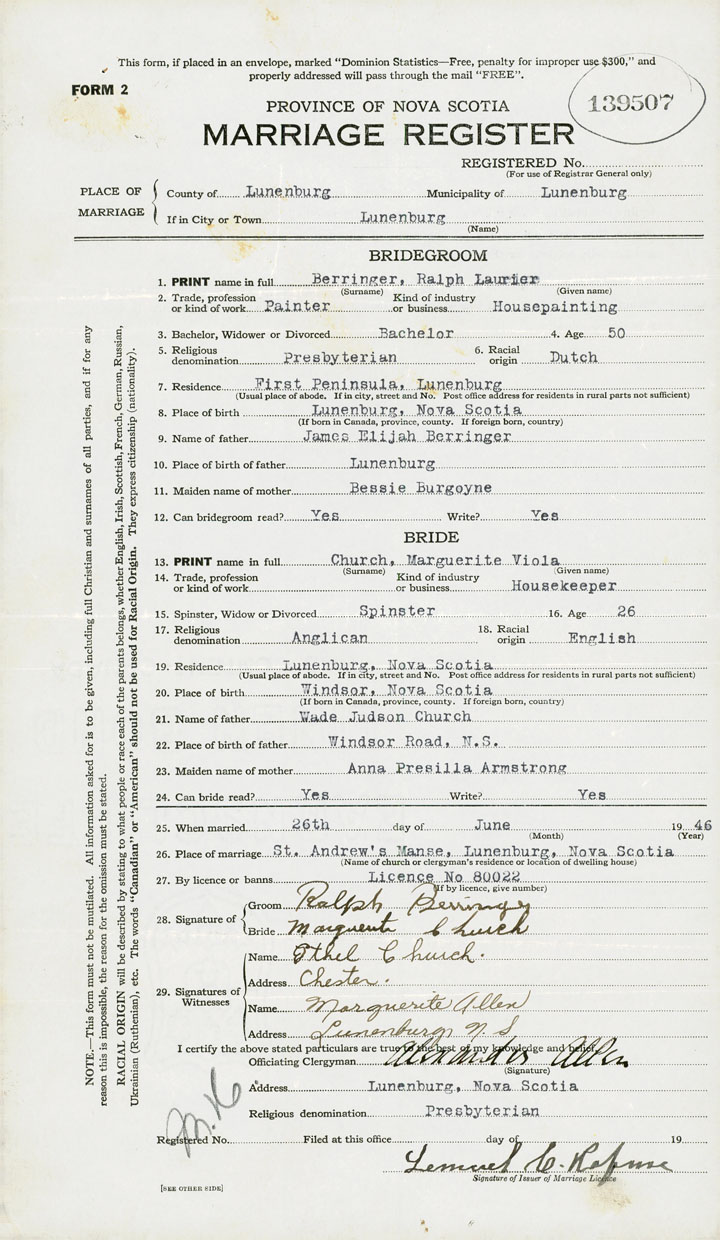 This form, if placed in an envelope, marked "Dominion Statistics—Free, penalty for improper use $300," and
properly addressed will pass through the mail "FREE".
FORM 2
139507
PROVINCE OF NOVA SCOTIA
MARRIAGE REGISTER
REGISTERED No.
(For use of Registrar General only)
PLACE OF MARRIAGE
County of Lunenburg Municipality of Lunenburg
If in City or Town Lunenburg
(Name)
BRIDEGROOM
1. PRINT name in full Berringer, Ralph Laurier
(Surname) (Given name)
2. Trade, profession or kind of work Painter Kind of industry or business Housepainting
3. Bachelor, Widower or Divorced Bachelor 4. Age 50
5. Religious denomination Presbyterian 6. Racial origin Dutch
7. Residence First Peninsula, Lunenburg
(Usual place of abode. If in city, street and No. Post office address for residents in rural parts not sufficient)
8. Place of birth Lunenburg, Nova Scotia
(If born in Canada, province, county. If foreign born, country)
9. Name of father James Elijah Berringer
10. Place of birth of father Lunenburg
11. Maiden name of mother Bessie Burgoyne
12. Can bridegroom read? Yes Write? Yes
BRIDE
13. PRINT name in full Church, Marguerite Viola
(Surname) (Given name)
14. Trade, profession or kind of work Kind of industry or business Housekeeper
15. Spinster, Widow or Divorced Spinster 16. Age 26
17. Religious denomination Anglican 18. Racial origin English
19. Residence Lunenburg, Nova Scotia
(Usual place of abode. If in city, street and No. Post office address for residents in rural parts not sufficient)
20. Place of birth Windsor, Nova Scotia
(If born in Canada, province, county. If foreign born, country)
21. Name of father Wade Judson Church
22. Place of birth of father Windsor Road, N.S.
23. Maiden name of mother Anna Presilla Armstrong
24. Can bride read? Yes Write? Yes
25. When married 26th day of June 19 46
(Month) (Year)
26. Place of marriage St. Andrew's Manse, Lunenburg, Nova Scotia
(Name of church or clergyman's residence or location of dwelling house)
27. By licence or banns Licence No 80022
(If by licence, give number)
28. Signature of
Groom Ralph Berringer
Bride Marguerite Church
29. Signatures of Witnesses
Name Ethel Church.
Address Chester.
Name Marguerite Allen
Address Lunenburg N.S
I certify the above stated particulars are true to the best of my knowledge and belief.
Officiating Clergyman Alexander Allen
(Signature)
Address Lunenburg, Nova Scotia
Religious denomination Presbyterian
Registered No. Filed at this office day of 19
Lemuel C.
Signature of Issuer of Marriage Licence
[SEE OTHER SIDE]
NOTE.—This form must not be mutilated. All information asked for is to be given, including full Christian and surnames of all parties, and if for any
reason this is impossible, the reason for the omission must be stated.
RACIAL ORIGIN will be described by stating to what people or race each of the parents belongs, whether English, Irish, Scottish, French, German, Russian,
Ukrainian (Ruthenian), etc. The words "Canadian" or "American" should not be used for Racial Origin. They express citizenship (nationality).